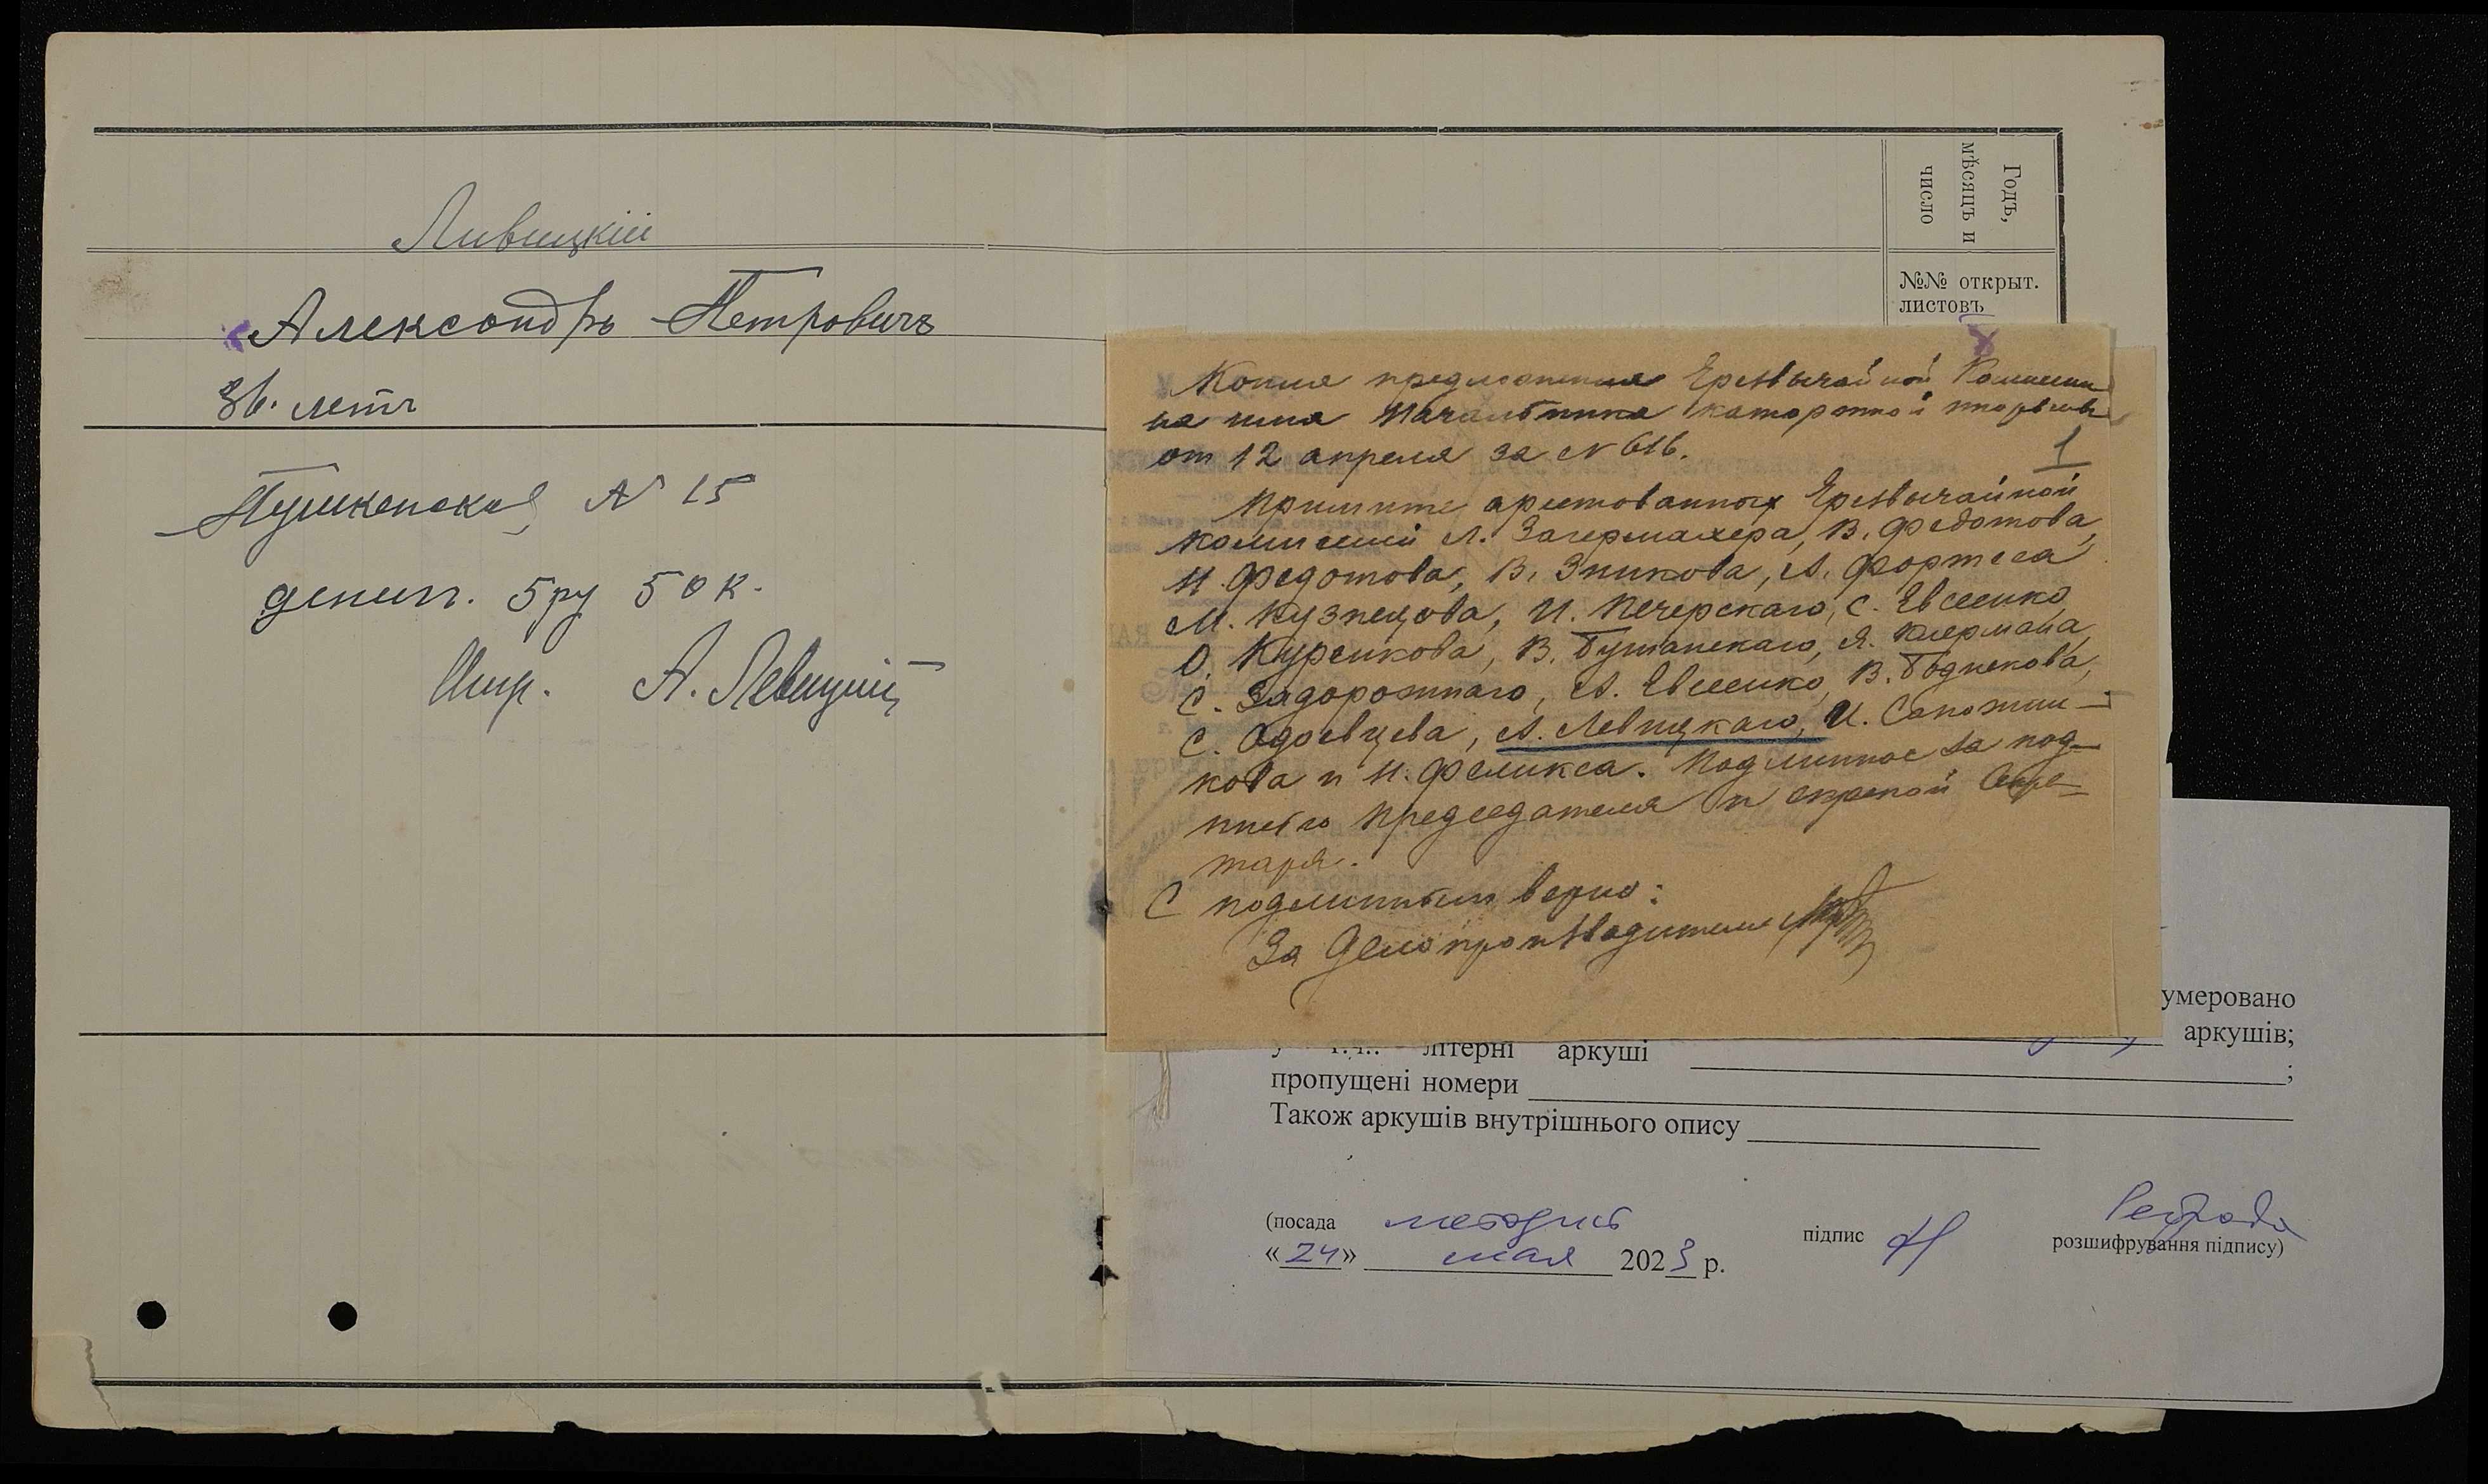 Ливицкій
Александръ Петровичъ
36. летъ
Пушкенская № 15
денег. 5 ру 50 к.
А. Левицкий
Годъ,
мѣсяцъ и
число
№№ открыт.
листовъ
Копия предложения Чрезвычайной Комиссии
на имя Начальника каторжной тюрьмы
от 12 апреля за № 616.
1
Примите арестованных Чрезвычайной
комиссией Л. Загермахера, В. Федотова,
И. Федотова, В. Зникова, А. Фортеса
М. Кузнецова, И. Печерскаго, С. Евсеенко,
О. Курсикова, В. Бушанскаго, Я. Клермана,
С. Задорожнаго, А. Евсеенко, В. Боднекова,
С. Одоевцева, А. Левицкаго, И. Сапожни-
кова и И. Феликса. Подлинное за под-
писью Председателя и скрепой Секре-
таря.
С подлинным верно:
За Делопроизводителя
умеровано
аркушів;
у т.ч.: літерні аркуші ;
пропущені номери
Також аркушів внутрішнього опису
(посада методист підпис
розшифрування підпису)
«24» мая 2023 р.